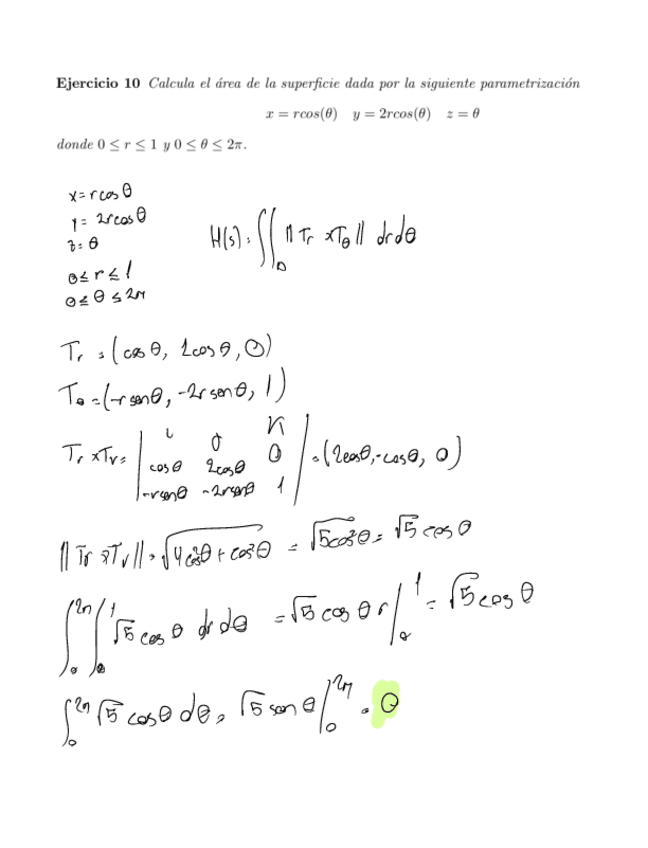 Ejercicio 10 Calcula el área de la superficie dada por la siguiente parametrización
x = rcos(θ) y = 2rcos(θ) z = θ
donde 0 ≤ r ≤ 1 y 0 ≤ θ ≤ 2π.
x = r cos θ
y = 2r cos θ
z = θ
0 ≤ r ≤ 1
0 ≤ θ ≤ 2π
H(s) = ∬_D ‖Tr × Tθ‖ dr dθ
Tr = (cos θ, 2cos θ, 0)
Tθ = (-r sen θ, -2r sen θ, 1)
Tr × Tv = | i j k
cos θ 2cos θ 0
-r sen θ -2r sen θ 1 | = (2cos θ, -cos θ, 0)
‖Tr × Tv‖ = √(4cos²θ + cos²θ) = √(5cos²θ) = √5 cos θ
∫₀^2π ∫₀^1 √5 cos θ dr dθ = √5 cos θ r |₀^1 = √5 cos θ
∫₀^2π √5 cos θ dθ = √5 sen θ |₀^2π = 0